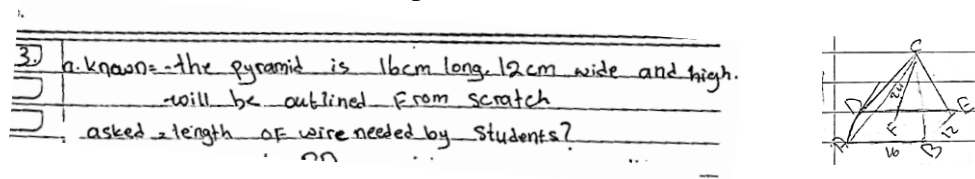 3. a. known = -the pyramid is 16cm long. 12cm wide and high.
-will be outlined From scratch
asked = length of wire needed by students?
C
24
D
E
F
12
A
16
B